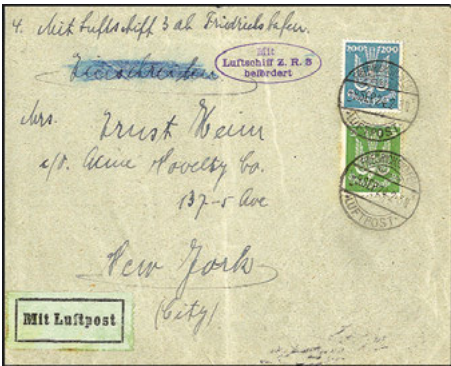 4. Mit Luftschiff 3 ab Friedrichshafen.
Einschreiben
Mit
Luftschiff Z. R. 3
befördert
200 200
LUFTPOST
LUFTPOST
Mrs.
Ernst Heim
c/o. Acme Novelty Co.
137-5 Ave
New York
(City)
Mit Luftpost